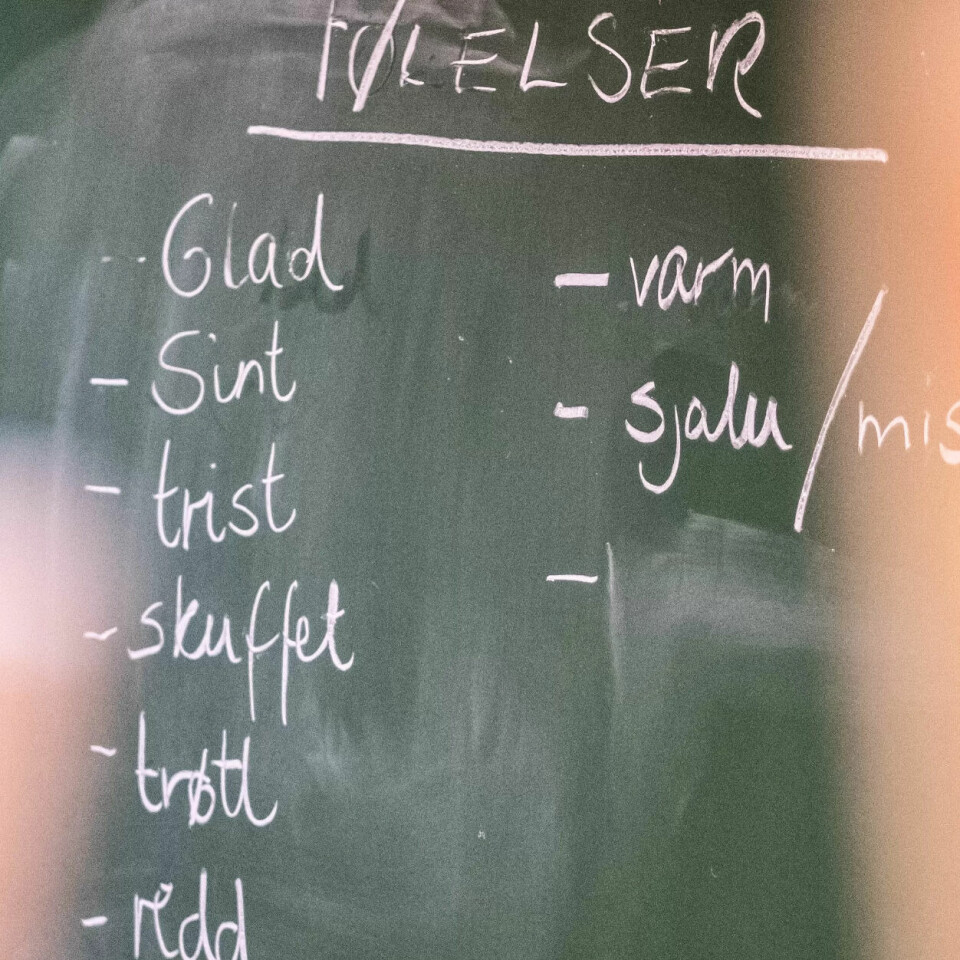 FØLELSER
- Glad
- Sint
- trist
- skuffet
- trøtt
- redd
- varm
- sjalu / mis
-